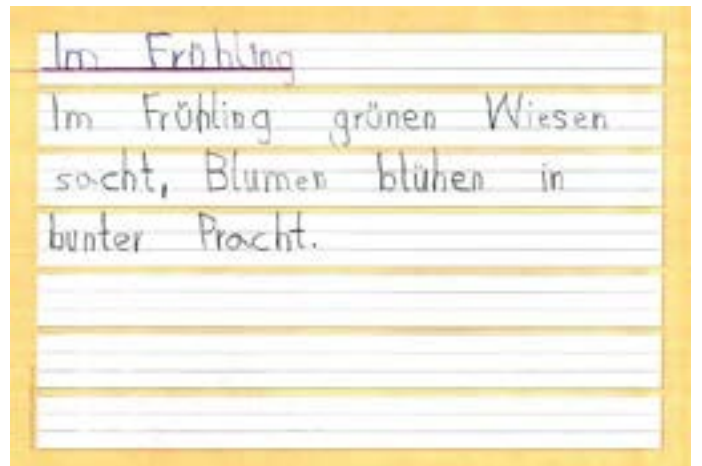 Im Frühling
Im Frühling grünen Wiesen
sacht, Blumen blühen in
bunter Pracht.